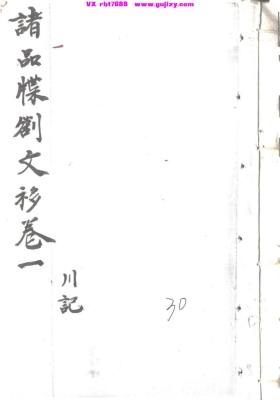 VX rht7888 www.gujizy.com
諸品牒劄文移卷一
川記
30